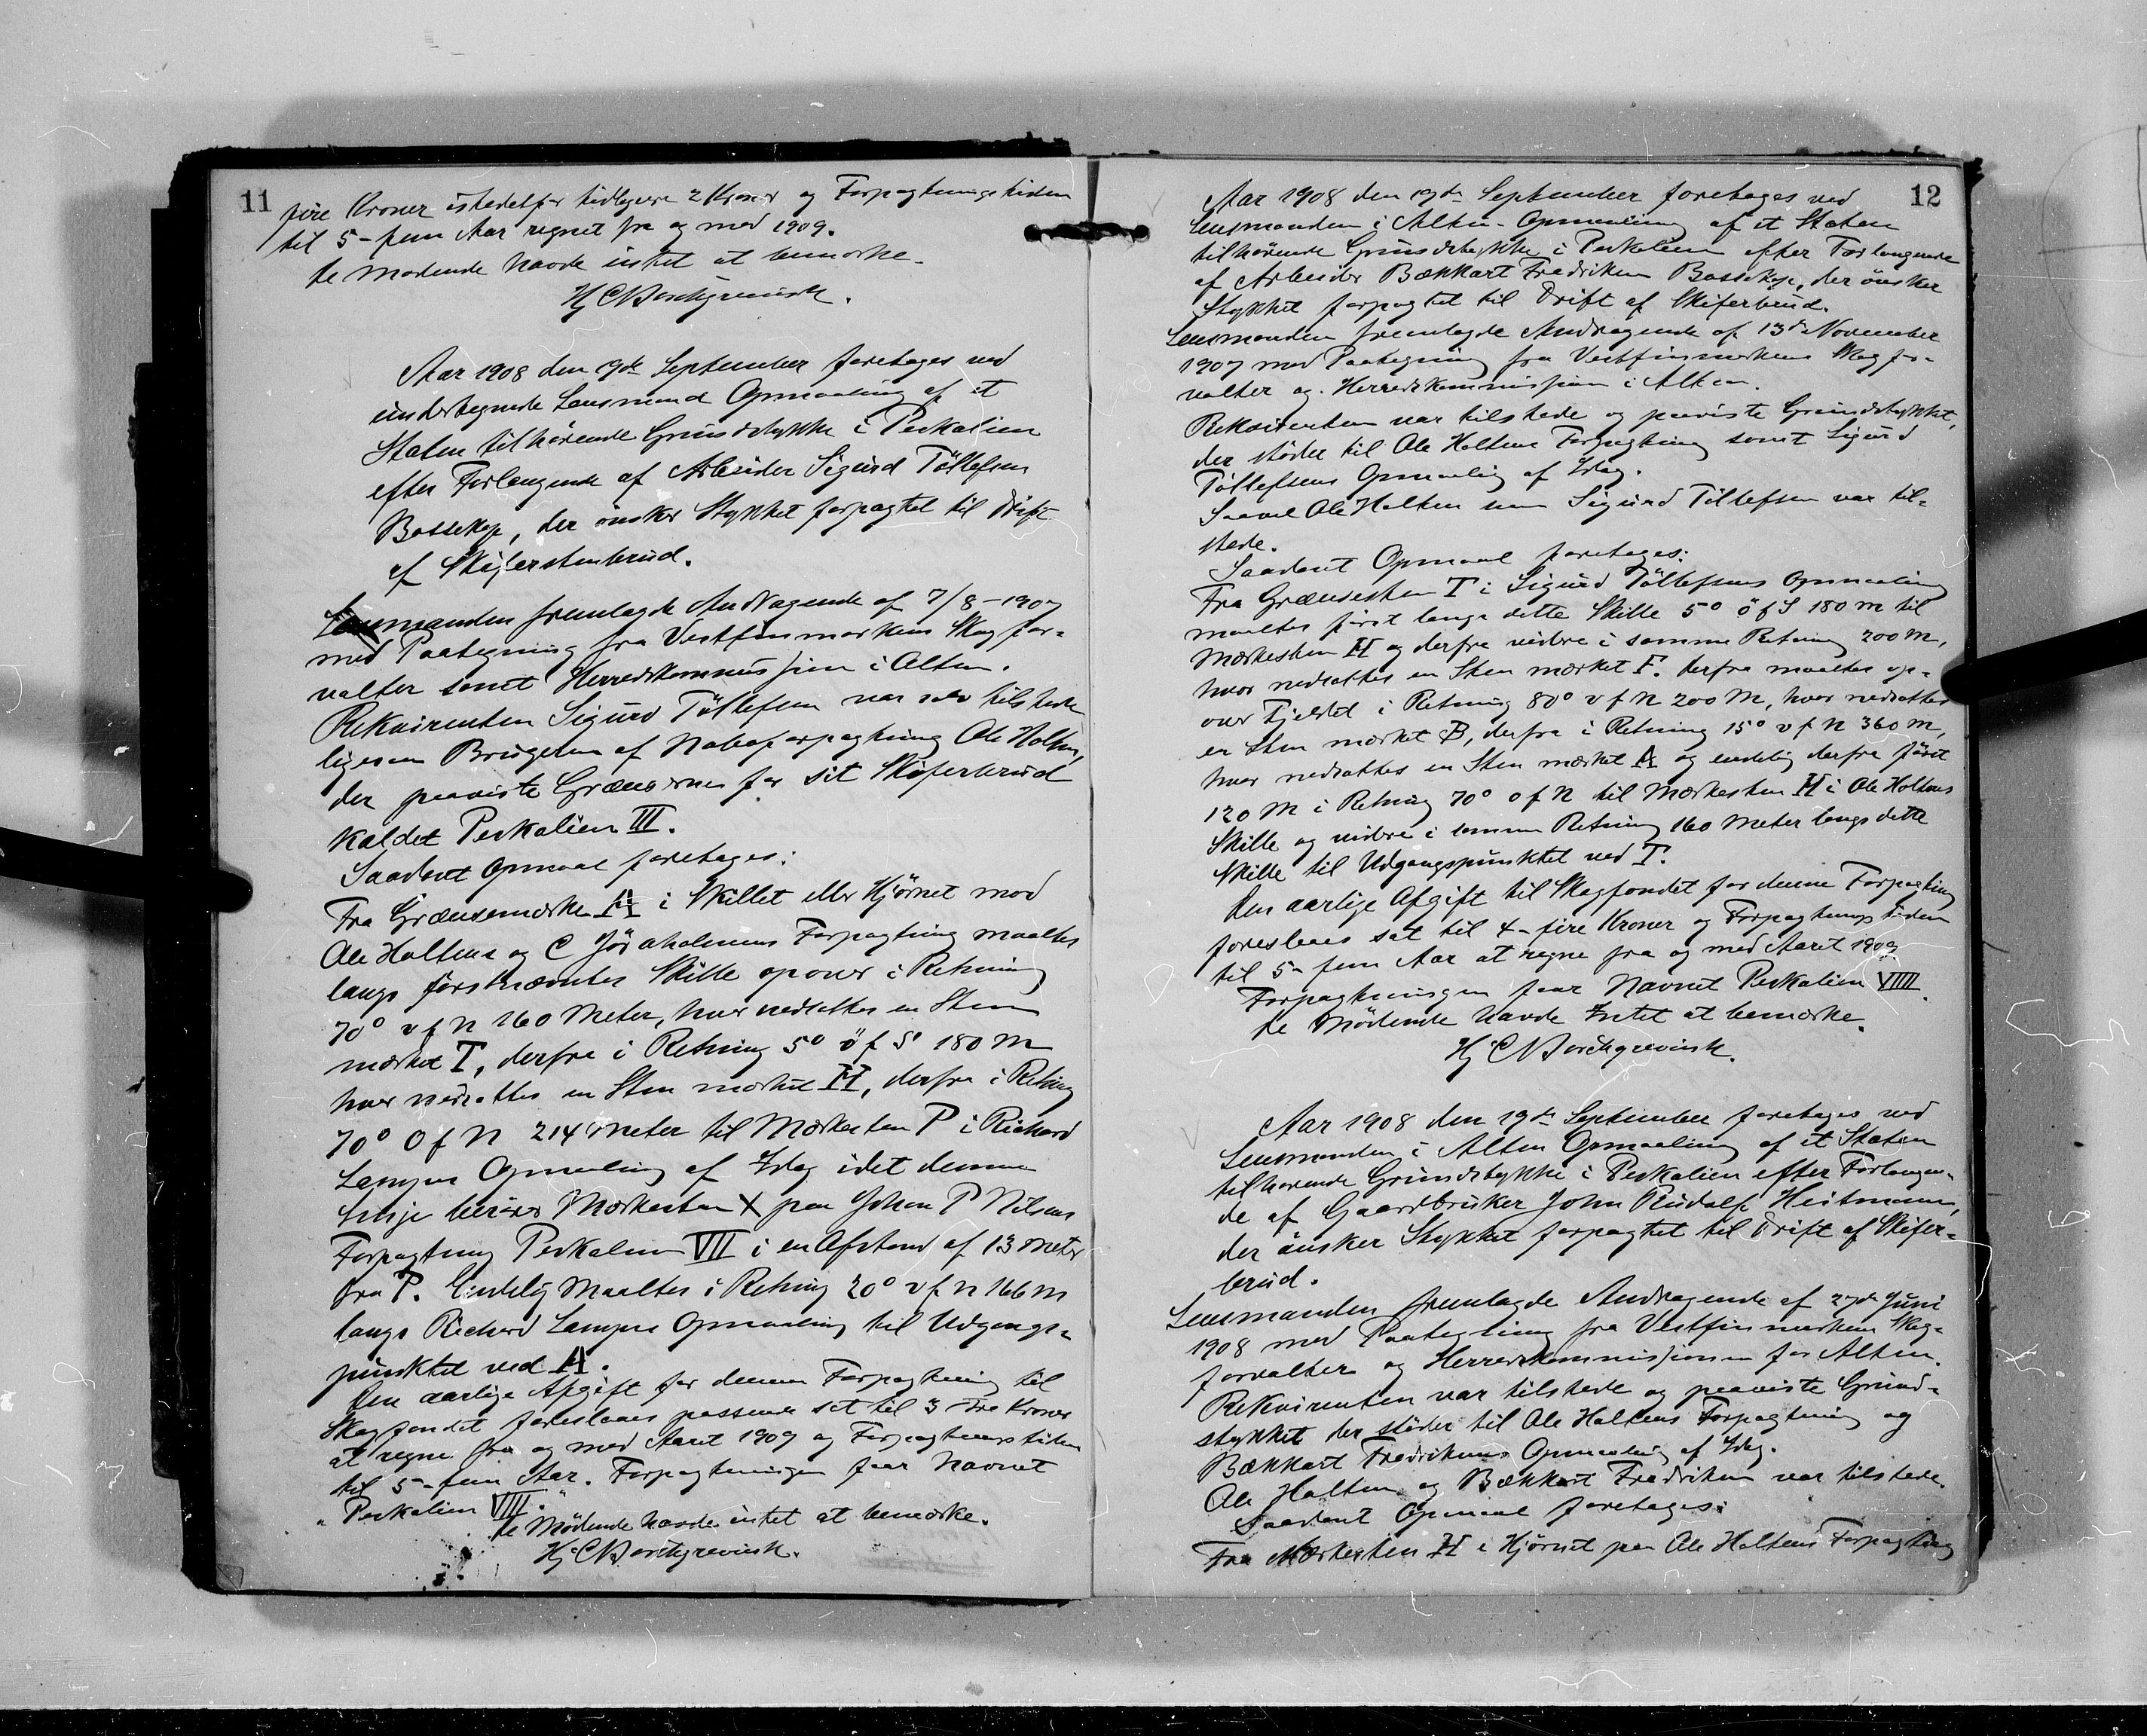 11
fire Kroner istedetfor tidligere 2 Kroner og Forpagtningstiden
til 5-fem Aar regnet fra og med 1909.
De mødende havde intet at bemærke.
Hj CBorchgrevink.
Aar 1908 den 19de September foretages ved
undertegnede Lensmand Opmaaling af et
Staten tilhørende Grundstykke i Peskalien
efter Forlangende af Arbeider Sigurd Töllefsen
Bossekop, der ønsker Stykket forpagtet til Drift
af Skiferstenbrud.
Lensmanden fremlagde Andragende af 7/8-1907
med Paategning fra Vestfinmarkens Skogfor-
valter samt Herredskommissjon i Alten.
Rekvirenten Sigurd Töllefsen var selv tilstede
ligesom Brugeren af Naboforpagtning Ole Holten,
der paaviste Grænserne for sit Skiferbrud
kaldet Peskalien III.
Saadant Opmaal foretages:
Fra Grænsemærke A i Skillet eller Hjørnet mod
Ole Holtens og C Forpagtning maaltes
langs førstnævntes Skille opover i Retning
70° v f N 160 Meter, hvor nedsattes en Sten
mærket I, derfra i Retning 5° ö f S 180 M
hvor nedsattes en Sten mærket H, derfra i Retning
70° O f N 214 Meter til Mærkesten P i Richard
Lampes Opmaaling af Idag idet denne
Linje berører Mærkesten X paa Johan P Nilsens
Forpagtning Peskalien VII i en Afstand af 13 Meter
fra P. Endelig maaltes i Retning 20° v f N 166 M
langs Richard Lampes Opmaaling til Udgangs-
punktet ved A.
Den aarlige Afgift for denne Forpagtning til
Skogfondet foreslaaes passende sat til 3 tre Kroner
at regne fra og med Aaret 1909 og Forpagtningstiden
til 5-fem Aar. Forpagtningen faar Navnet
"Peskalien VIII."
De Mødende havde intet at bemærke.
Hj CBorchgrevink.
12
Aar 1908 den 19de September foretages ved
Lensmanden i Alten Opmaaling af et Staten
tilhørende Grundstykke i Peskalien efter Forlangende
af Arbeider Bækkart Fredriksen Bossekop, der ønsker
Stykket forpagtet til Drift af Skiferbrud.
Lensmanden fremlagde Andragende af 13de November
1907 med Paategning fra Vestfinmarkens Skogfor-
valter og Herredskommissjon i Alten.
Rekvirenten var tilstede og paaviste Grundstykket,
der støder til Ole Holtens Forpagtning samt Sigurd
Töllefsens Opmaaling af Idag.
Saavel Ole Holten som Sigurd Töllefsen var til-
stede.
Saadant Opmaal foretages:
Fra Grænsesten I i Sigurd Töllefsens Opmaaling
maaltes først langs dette Skille 5° ö f S 180 m til
Mærkesten H og derfra videre i samme Retning 200 M,
hvor nedsattes en Sten mærket F. Derfra maaltes op-
over Fjeldet i Retning 80° v f N 200 M, hvor nedsattes
en Sten mærket B, derfra i Retning 15° v f N 360 M,
hvor nedsattes en Sten mærket A og endelig derfra först
120 M i Retning 70° o f N til Mærkesten H i Ole Holtens
Skille og videre i samme Retning 160 Meter langs dette
Skille til Udgangspunktet ved I.
Den aarlige Afgift til Skogfondet for denne Forpagtning
foreslaaes sat til 4-fire Kroner og Forpagtningstiden
til 5-fem Aar at regne fra og med Aaret 1909
Forpagtningen faar Navnet Peskalien VIIII.
De Mødende havde Intet at bemærke.
Hj CBorchgrevink.
Aar 1908 den 19de September foretages ved
Lensmanden i Alten Opmaaling af et Staten
tilhørende Grundstykke i Peskalien efter Forlangen-
de af Gaardbruker John Rudolf Heitmann,
der ønsker Stykket forpagtet til Drift af Skifer-
brud.
Lensmanden fremlagde Andragende af 27de Juni
1908 med Paategning fra Vestfinmarkens Skog-
forvalter og Herredskommissjonen for Alten.
Rekvirenten var tilstede og paaviste Grund-
stykket der støder til Ole Holtens Forpagtning og
Bækkart Fredriksens Opmaaling af Idag.
Ole Holten og Bækkart Fredriksen var tilstede.
Saadant Opmaal foretages:
Fra Mærkesten H i Hjørnet paa Ole Holtens Forpagtning